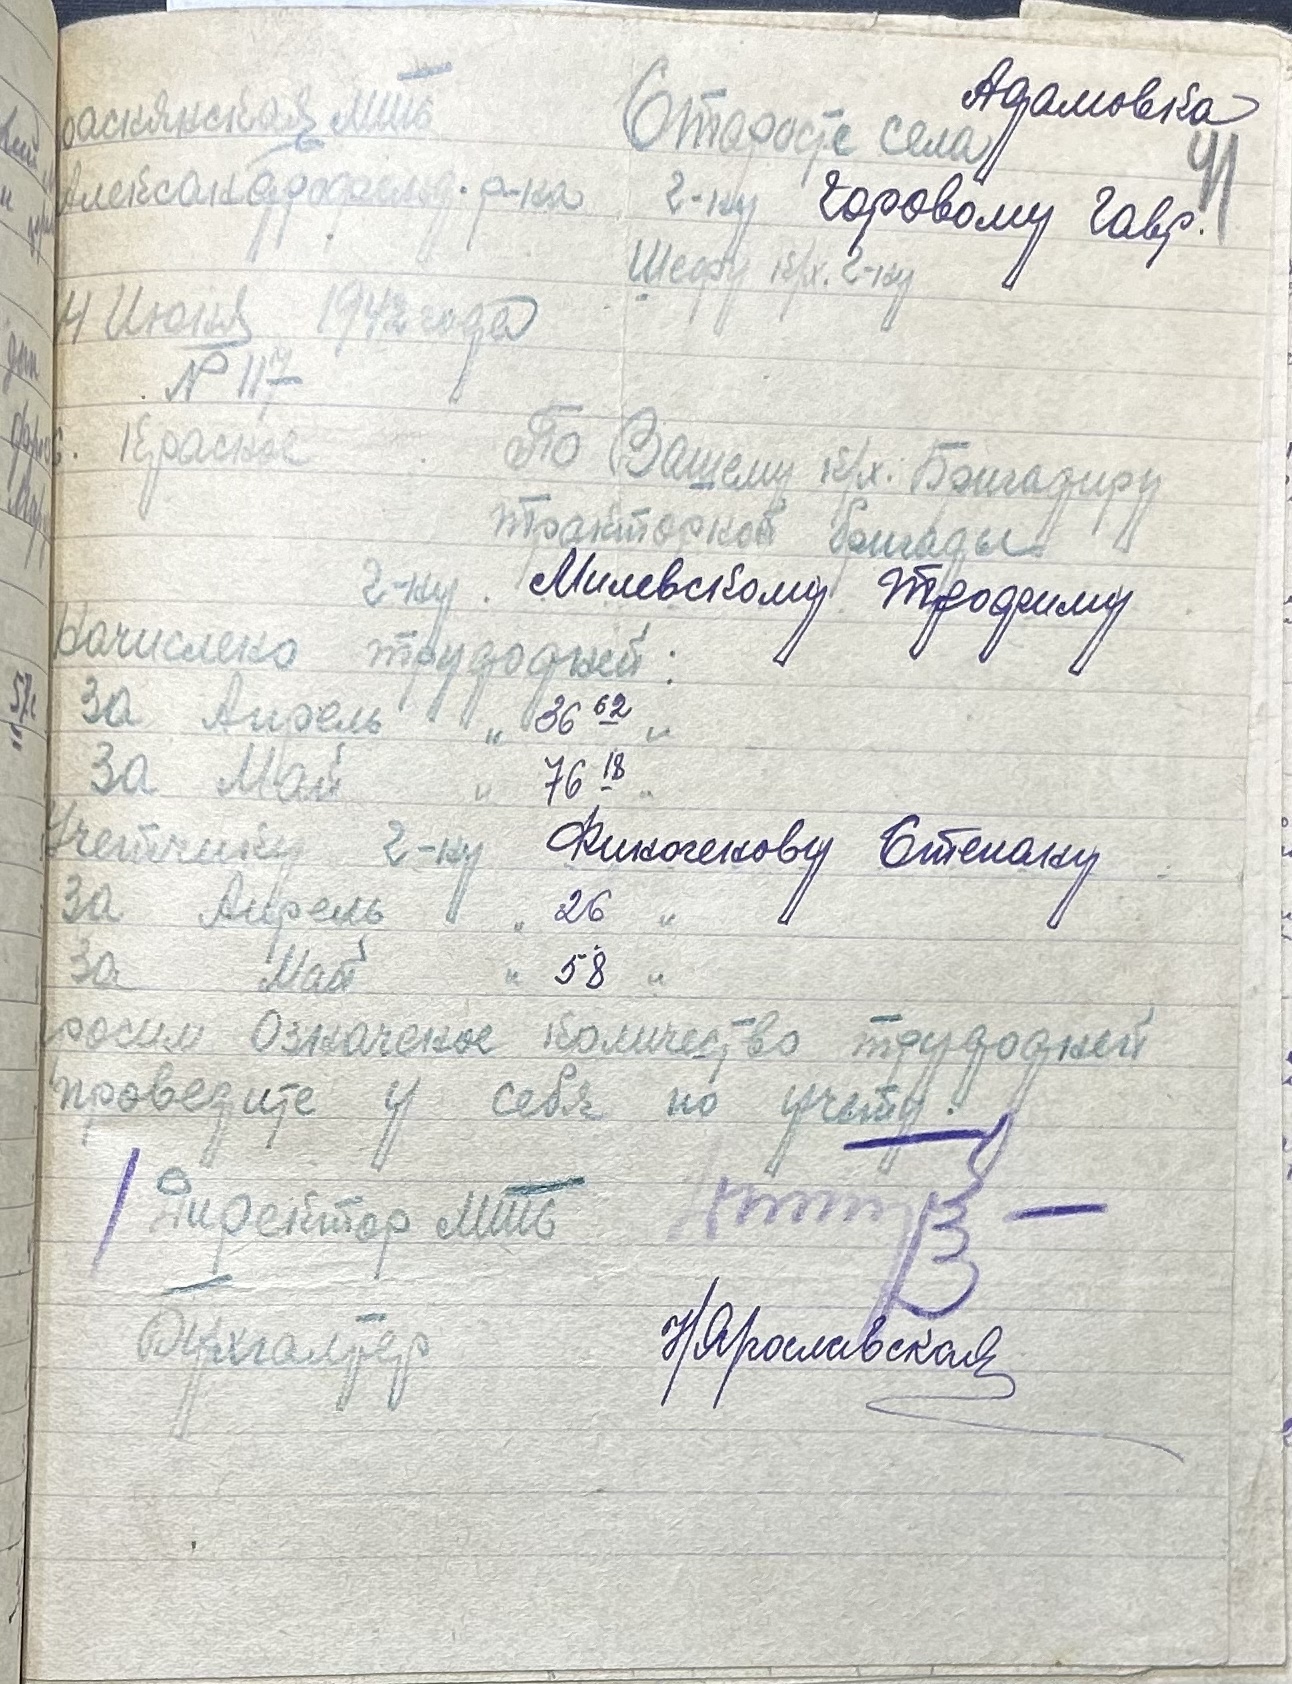 Краснянская МТС
Александрфельд. р-на
14 Июня 1942 года
№ 117
с. Красное
Старосте села Адамовка
г-ну Горовому Гавр.
Шефу к/х. г-ну
41
По Вашему к/х. Бригадиру
тракторной бригады
г-ну Милевскому Трофиму
Начислено трудодней:
За Апрель " 36 62 "
За Май " 76 18 "
Учетчику г-ну Финогенову Степану
За Апрель " 26 "
За Май " 58 "
росим Означеное количество трудодней
проведите у себя на учету.
Директор МТС
Бухгалтер Н Ярославская